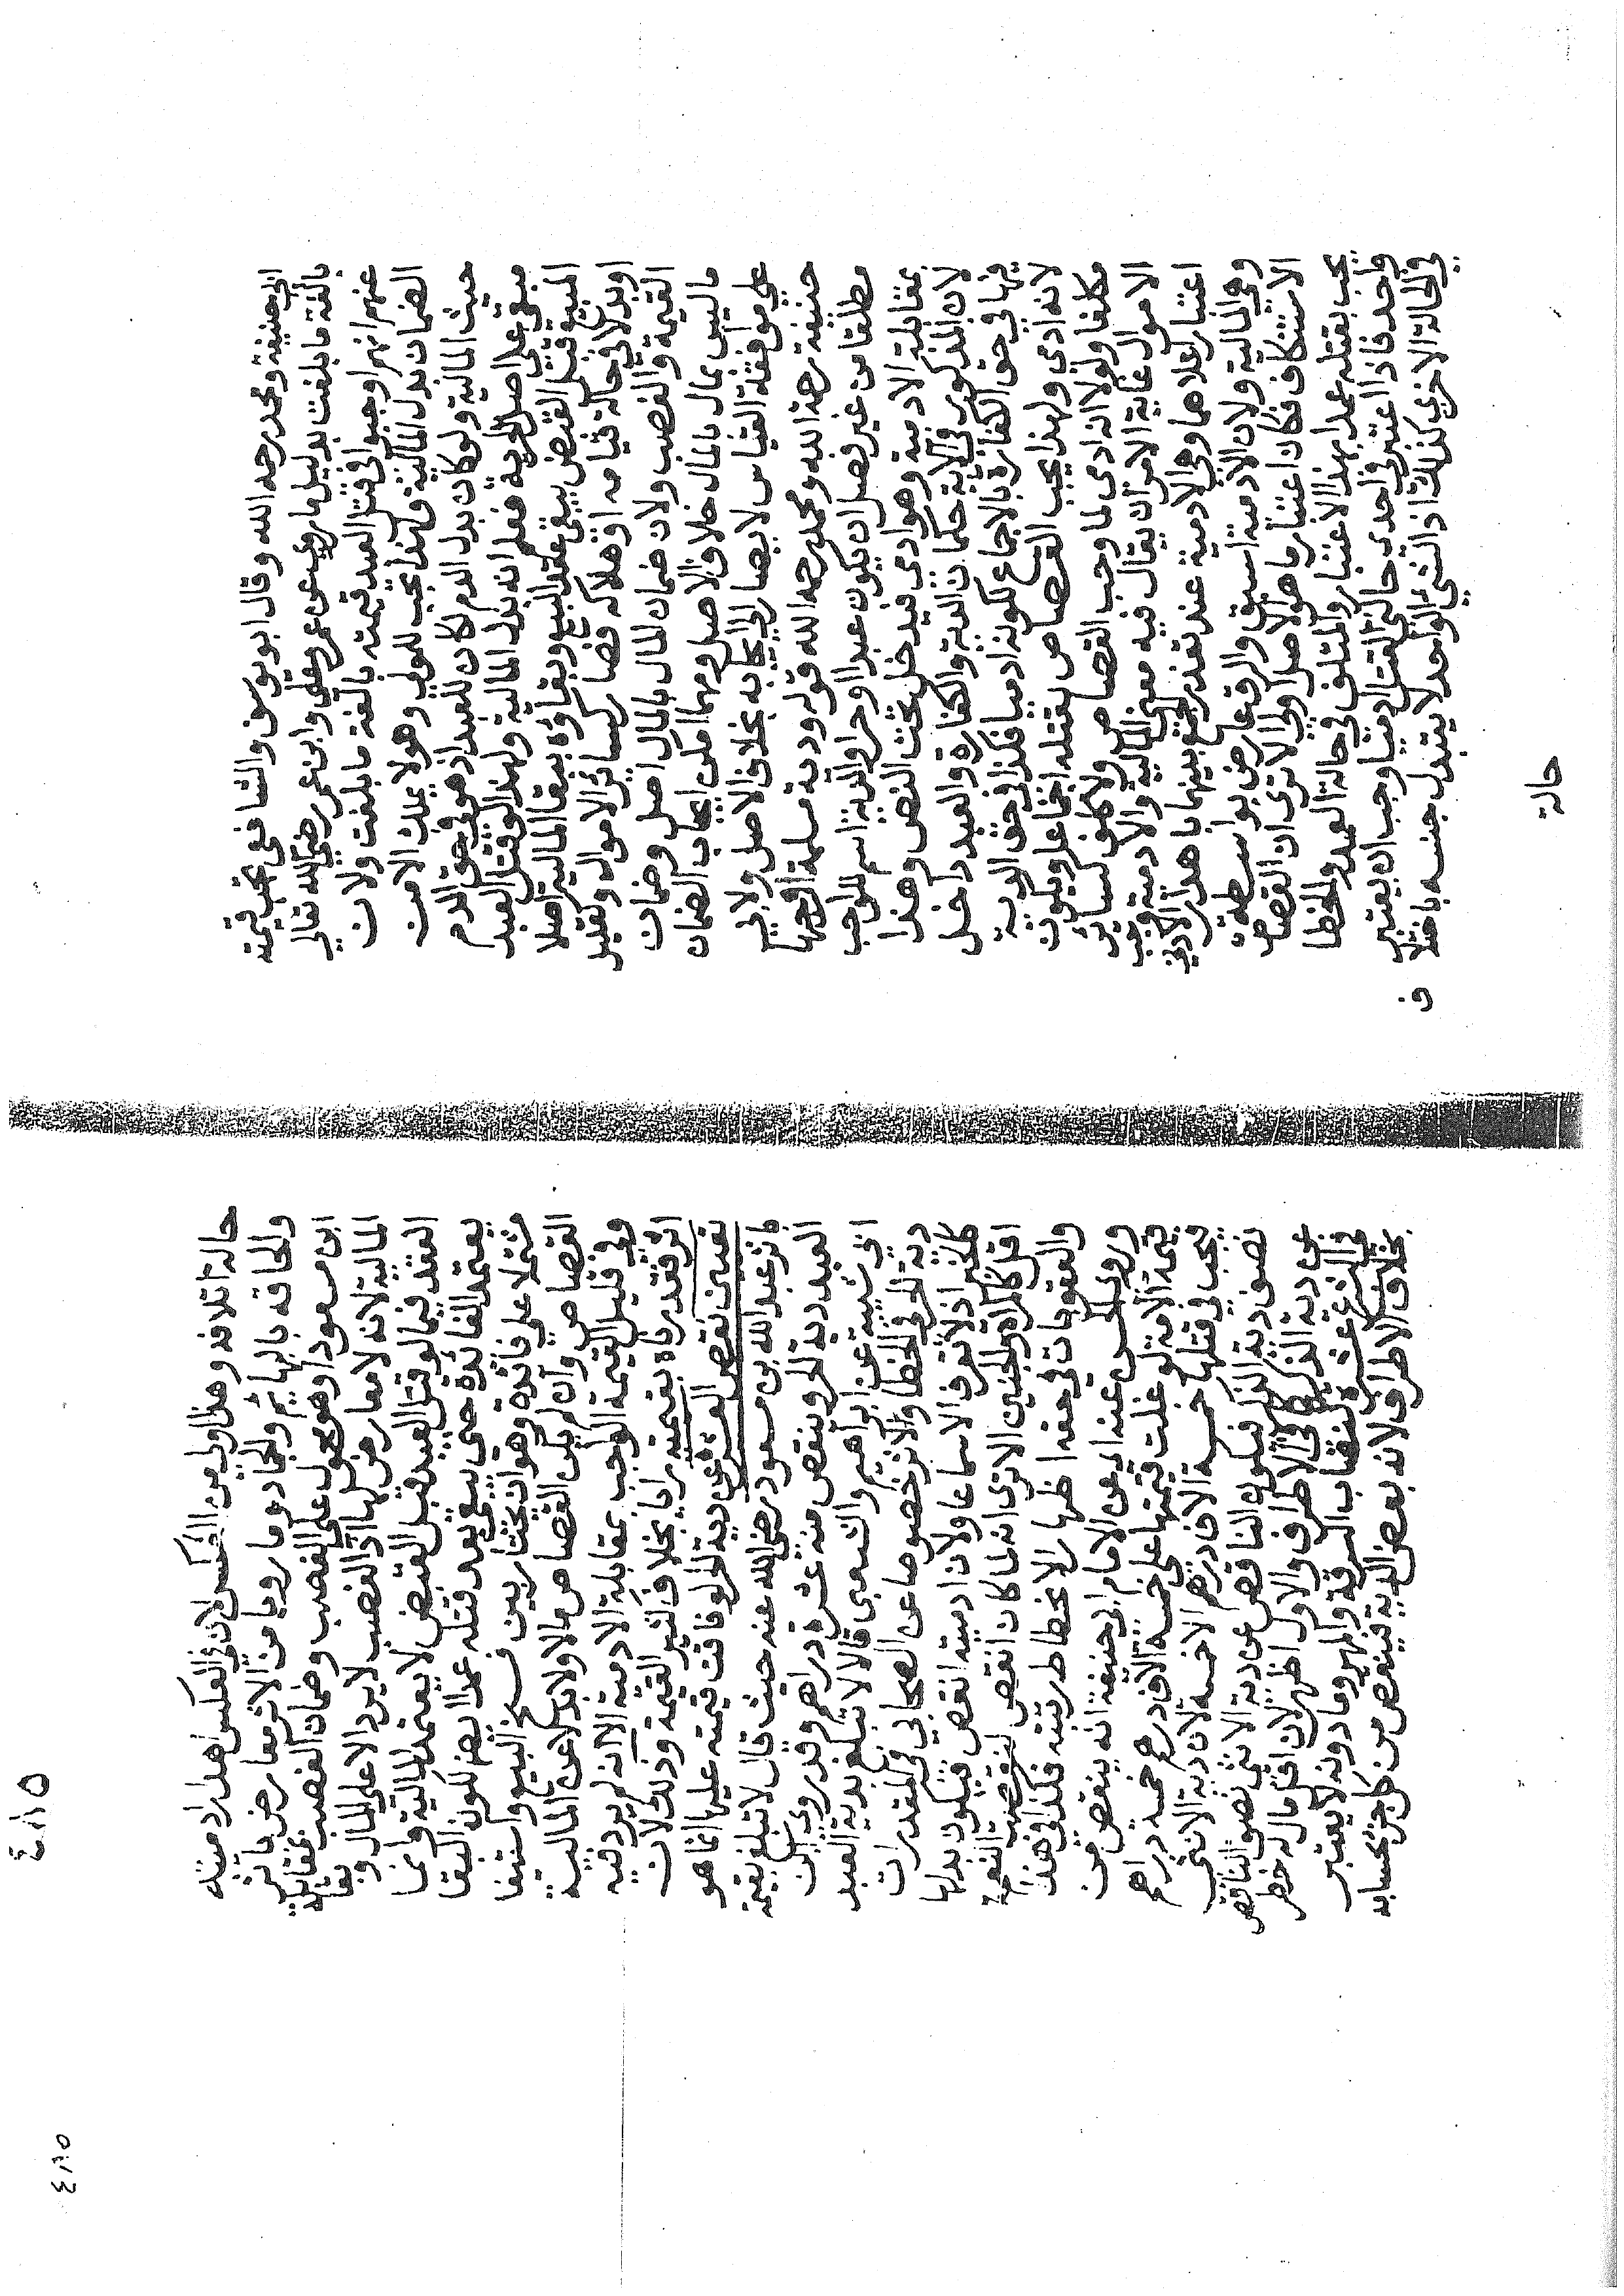 ابي حنيفة ومحمد رحمه الله وقال ابويوسف والشافعي تجب قيمته
بالغة ما بلغت بدليل ما روي عن عمر وعلي وابن عمر رضي الله تعالى
عنهم انهم اوجبوا في قتل العبد قيمته بالغة ما بلغت ولان
الضمان بدل المالية ولهذا يجب للمولي وهو لا يملك الا من
حيث المالية ولو كان بدل الدم لكان للعبد اذ هو في حق الدم
مبقي علي اصل الحرية فعلم انه بدل المالية ولهذا لو قتل العبد
المبيع قبل القبض يبقى عقد البيع وبقاؤه ببقا المالية اصلا
او بدلا في حالة قيامه او هلاكه فصار كسائر الاموال وكقليل
القيمة والغصب ولان ضمان المال بالمال اصل وضمان
ما ليس بمال بالمال خلاف الاصل ومهما امكن ايجاب الضمان
علي موافقة القياس لا يصار الي ايجابه بخلاف الاصل ولابي
حنيفة رحمة الله ومحمد رحمه الله قوله ودية مسلمة اوجبها
مطلقا من غير فصل ان يكون عبدا او حرا والدية اسم للواجب
بمقابلة الادمية وهو ادمي فيدخل تحت النص وهذا
لان المذكور في الاية حكمان الدية والكفارة والعبد داخل
فيها في حق الكفارة بالاجماع لكونه ادميا فكذا في حق الدية
لانه ادمي ولهذا يجب القصاص بقتله اجماعا ويكون
مكلفا ولولا انه ادمي لما وجب القصاص ولا كلف كسائر
الاموال غاية الامر ان يقال فيه معنى المالية والادمية فيجب
اعتبار اعلاهما وهي الادمية عند تعذر الجمع بينهما باهدار الادنى
وهي المالية ولان الادمية اسبق والرق عارض بواسطة
الاستنكاف فكان اعتبار ما هو الاصل اولي الا ترى ان القصاص
يجب بقتله عمدا بهذا الاعتبار والمتلف في حالة العمد والخطا
واحد فاذا اعتبر في احدى حالتي القتل ادميا وجب ان يعتبر
في الحالة الاخرى كذلك اذ الشئ الواحد لا يتبدل جنسه باختلا
ف
حالة
حالة اتلافه وهذا اولي من العكس لان في العكس اهدار ادميته
والحاقه بالبهايم والجماد وما رويا من الاثر معارض باثر
ابن مسعود او هو محمول على الغصب وضمان الغصب بمقابلة
المالية لانه لا معارض لها اذ الغصب لا يرد الا علي المال وبقا
العقد فيما لو قتل العبد قبل القبض لا يعتمد المالية وانما
يعتمد الفائدة حتى يبقي بعد قتله عمدا ايضا لكون البقا
مشتملا علي فائدة وهو ان يختار بين فسخ البيع واستيفا
القصاص وان لم يكن القصاص مالا ولا بدلا عن المالية
وفي قليل القيمة الواجب بمقابلة الادمية الا انه لم يرد فيه
اثر فقدرناه بقيمته رايا بخلاف كثير القيمة وذلك لان
تعيين نقص العشر عن دية الحر لو فاقت قيمته عليها انما هو
باثر عبد الله بن مسعود رضي الله عنه حيث قال لا تبلغ بقيمة
العبد دية الحر وينقص منه عشرة دراهم وقد روي ابن
ابي شيبة عن ابراهيم والشعبي قالا لا تبلغ بدية العبد
دية الحر في الخطا والاثر خصوصا عن الصحابي في المقدرات
كالخبر اذ لا تعرف الا سماعا ولان ادميته انقص فيكون بدلها
اقل كالمراة والجنين الا ترى انه لما كان انقص
والعقوبات في حقه اظهارا لانحطاط رتبته فكذا في هذا
وروي الحسن عنه اي عن الامام ابي حنيفة انه ينقص من
قيمة الامة لو غلت قيمتها على خمسة الاف درهم خمسة دراهم
فيجب في قتلها خمسة الاف درهم الا خمسة لان دية الانثى
نصف دية الذكر فيكون الناقص عن دية الانثى نصف الناقص
عن دية الذكر كما في الاطراف والاول اظهر لان اقل مال له خطر
في الشرع عشرة كنصاب السرقة والمهر وما دونه لا يعتبر
بخلاف الاطراف لانه بعض الدية فينقص من كل جزء بحسابه
٤٨٥
٤٨٥